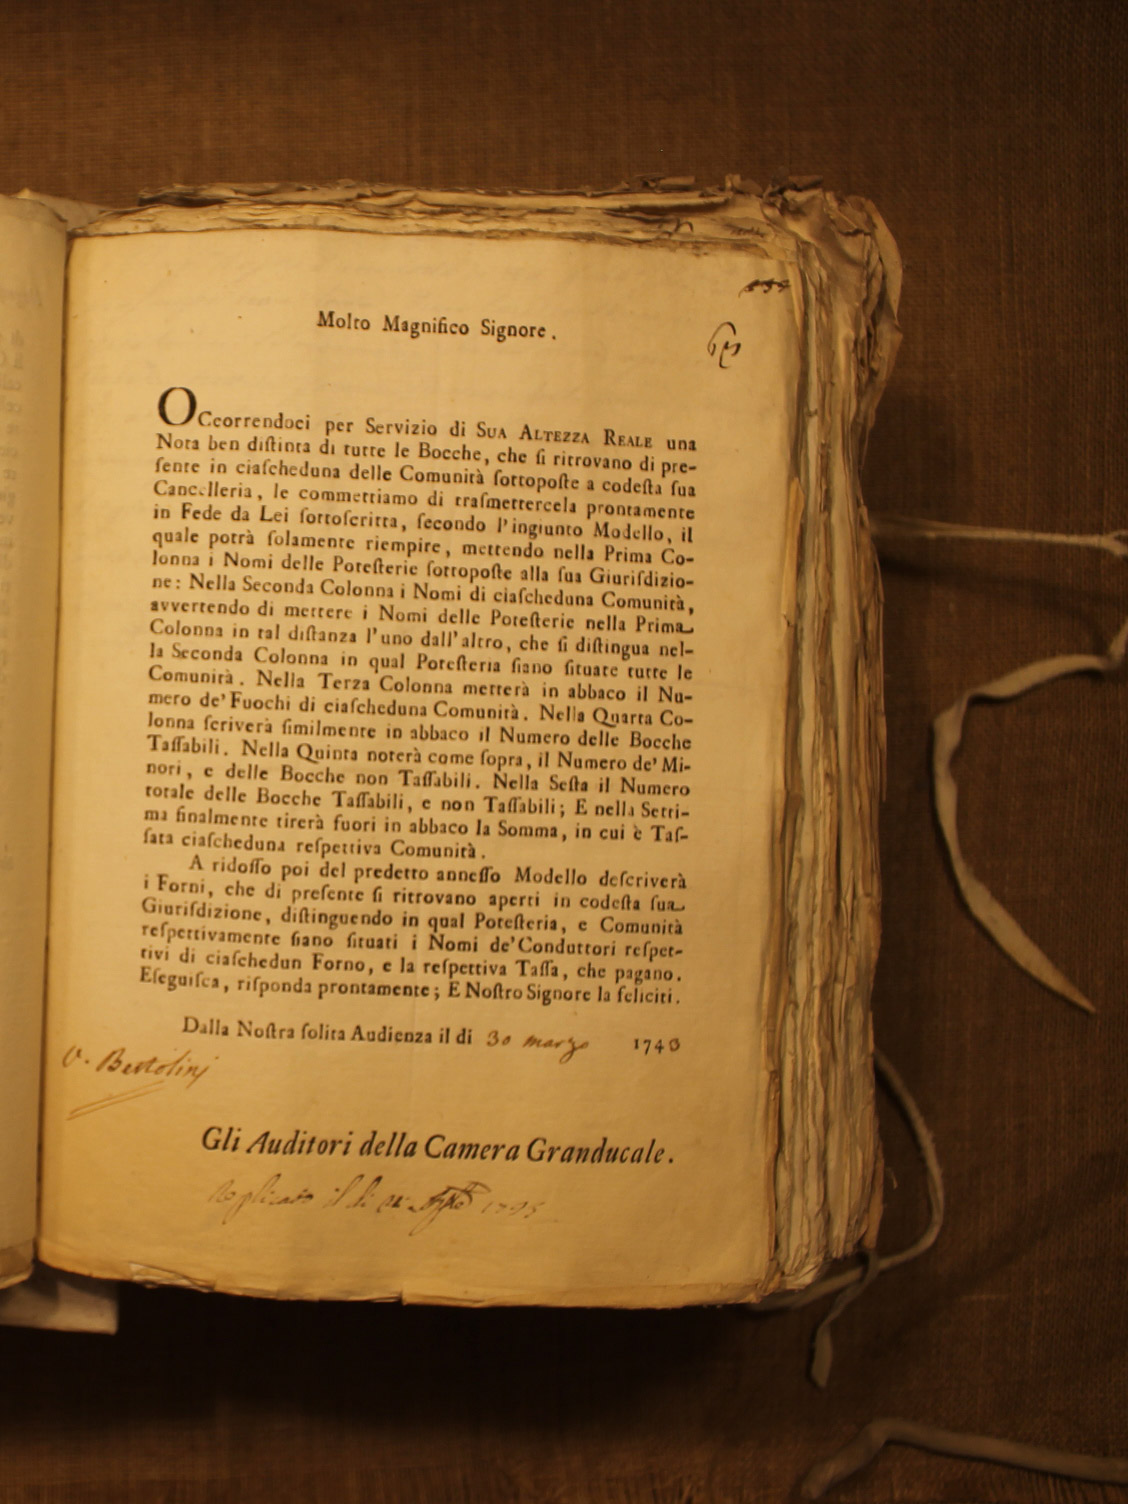 Molto Magnifico Signore.
OCcorrendoci per Servizio di SUA ALTEZZA REALE una
Nota ben diſtinta di tutte le Bocche, che ſi ritrovano di pre-
ſente in ciaſcheduna delle Comunità ſottopoſte a codeſta ſua
Cancelleria, le commettiamo di traſmettercela prontamente
in Fede da Lei ſottoſcritta, ſecondo l'ingiunto Modello, il
quale potrà ſolamente riempire, mettendo nella Prima Co-
lonna i Nomi delle Poteſterie ſottopoſte alla ſua Giuriſdizio-
ne: Nella Seconda Colonna i Nomi di ciaſcheduna Comunità,
avvertendo di mettere i Nomi delle Poteſterie nella Prima
Colonna in tal diſtanza l'uno dall'altro, che ſi diſtingua nel-
la Seconda Colonna in qual Poteſteria ſiano ſituate tutte le
Comunità. Nella Terza Colonna metterà in abbaco il Nu-
mero de' Fuochi di ciaſcheduna Comunità. Nella Quarta Co-
lonna ſcriverà ſimilmente in abbaco il Numero delle Bocche
Taſſabili. Nella Quinta noterà come ſopra, il Numero de' Mi-
nori, e delle Bocche non Taſſabili. Nella Seſta il Numero
totale delle Bocche Taſſabili, e non Taſſabili; E nella Setti-
ma finalmente tirerà fuori in abbaco la Somma, in cui è Taſ-
ſata ciaſcheduna reſpettiva Comunità.
A ridoſſo poi del predetto anneſſo Modello deſcriverà
i Forni, che di preſente ſi ritrovano aperti in codeſta ſua
Giuriſdizione, diſtinguendo in qual Poteſteria, e Comunità
reſpettivamente ſiano ſituati i Nomi de' Conduttori reſpet-
tivi di ciaſchedun Forno, e la reſpettiva Taſſa, che pagano.
Eſeguiſca, riſponda prontamente; E Noſtro Signore la feliciti.
Dalla Noſtra ſolita Audienza il di 30 marzo 1740
V. Bertolini
Gli Auditori della Camera Granducale.
Replicato il di